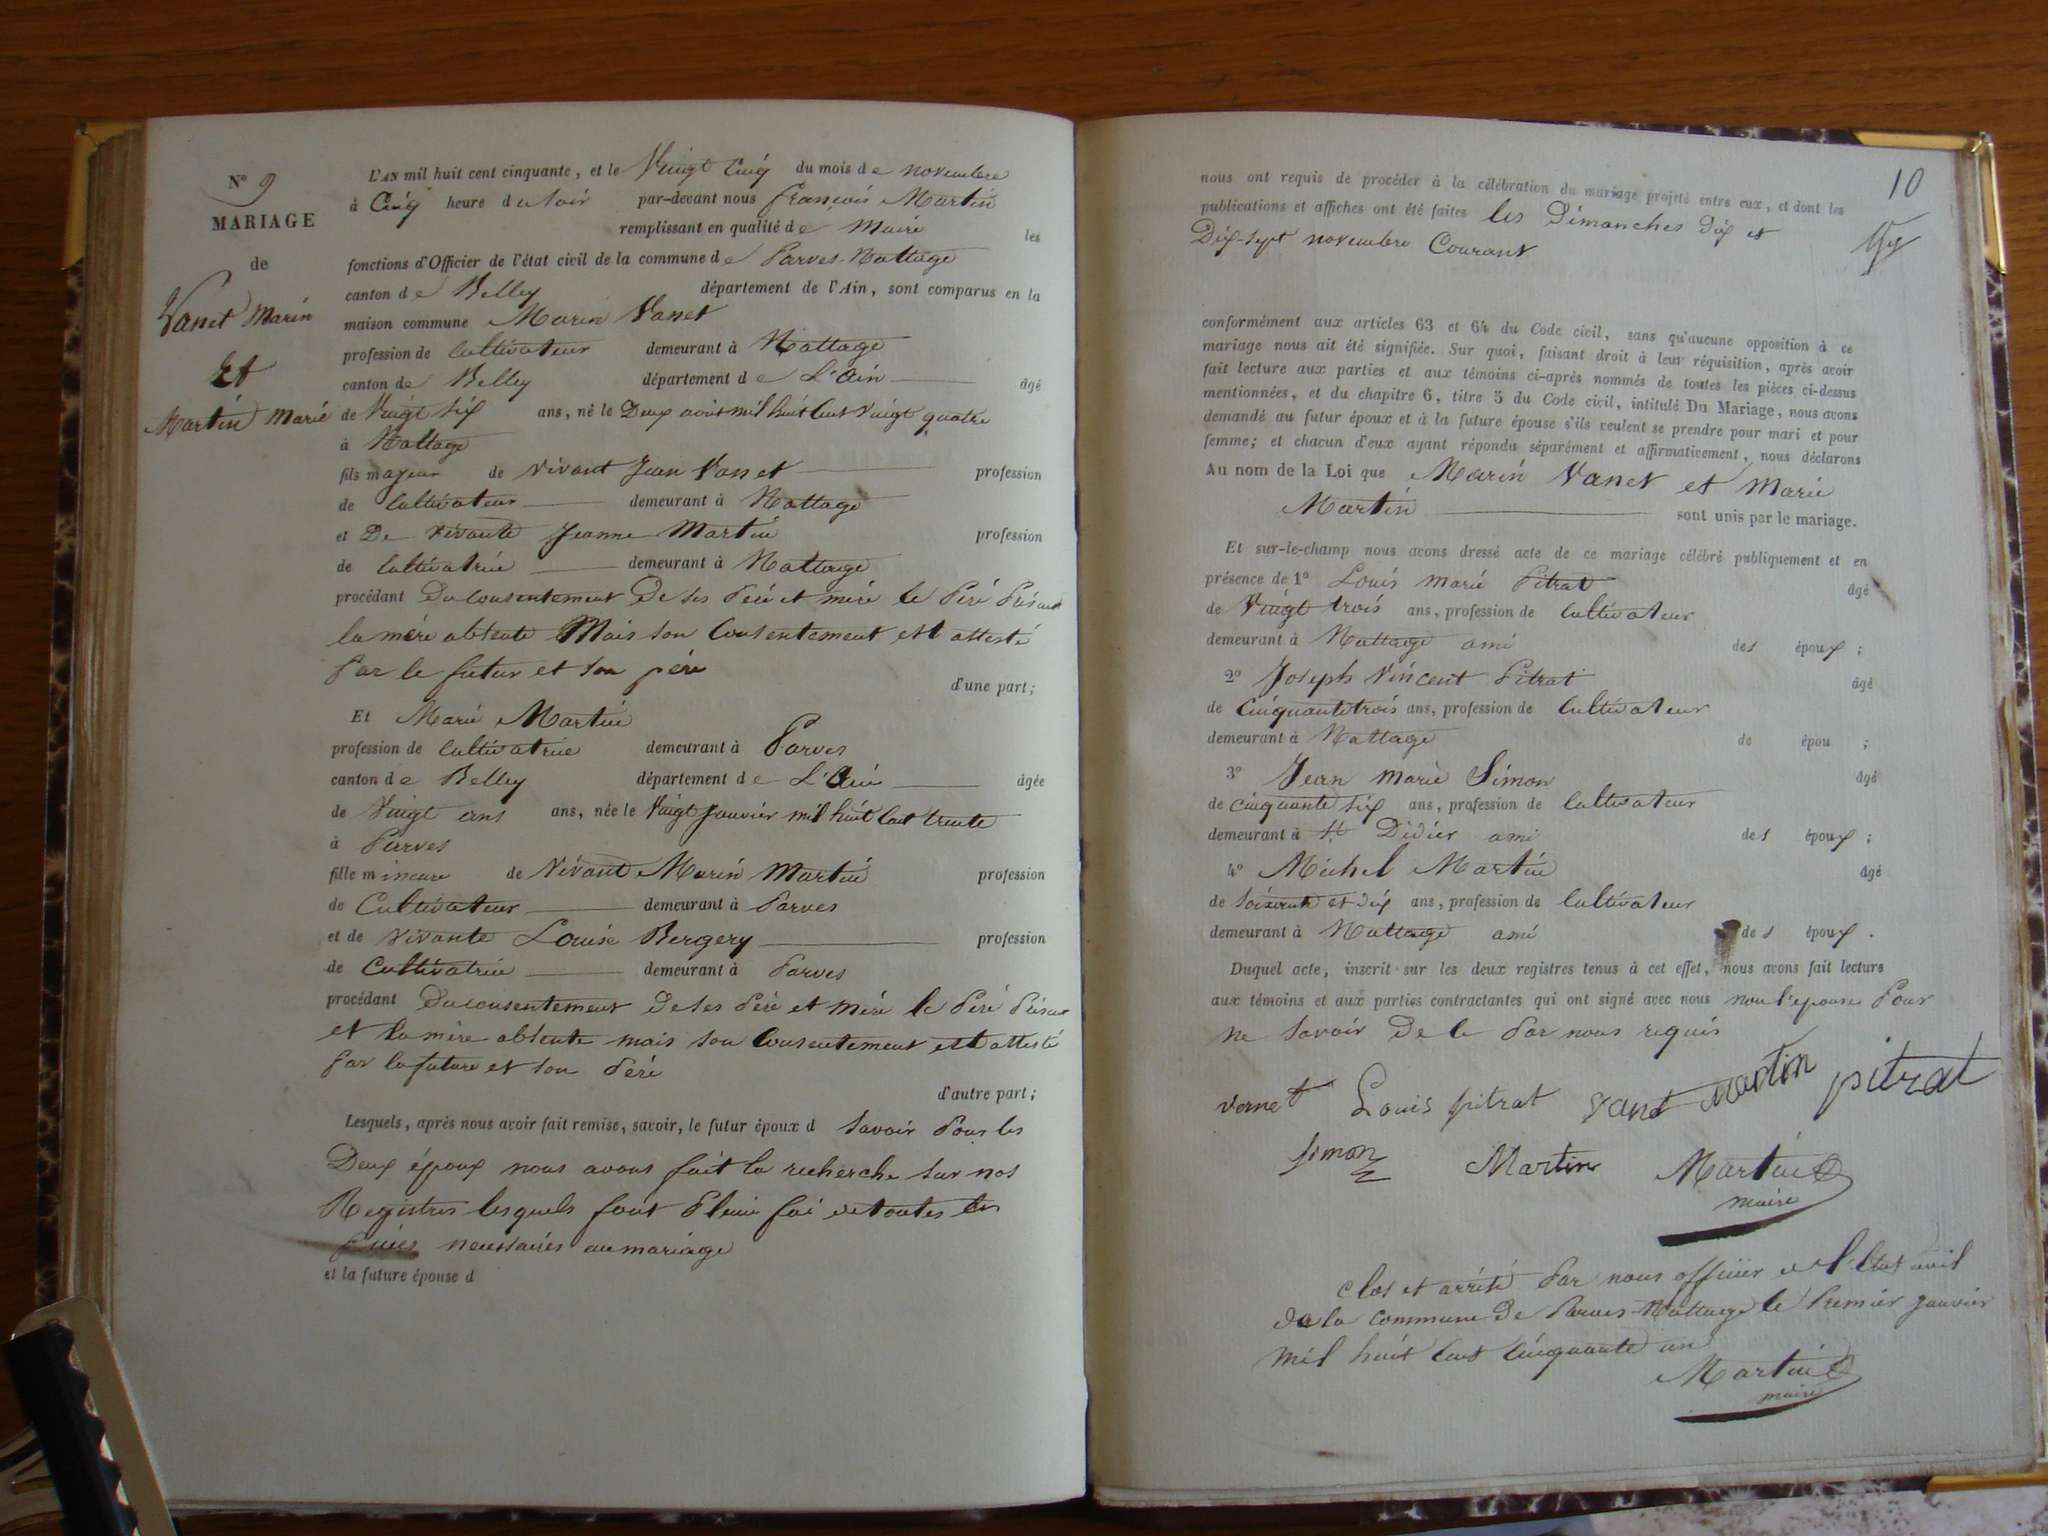 N° 9
MARIAGE
de
Vanet Marin
Et
Martin Marie
L'AN mil huit cent cinquante, et le Vingt Cinq du mois de novembre
à Cinq heure du soir par-devant nous françois Martin
remplissant en qualité de Maire les
fonctions d'Officier de l'état civil de la commune de Parves-Nattage
canton de Belley département de l'Ain, sont comparus en la
maison commune Marin Vanet
profession de Cultivateur demeurant à Nattage
canton de Belley département de L'Ain âgé
de Vingt Six ans, né le Deux août mil huit Cent Vingt quatre
à Nattage
fils majeur de vivant Jean Vanet profession
de Cultivateur demeurant à Nattage
et De vivante Jeanne Martin profession
de Cultivatrice demeurant à Nattage
procédant Du Consentement De ses Père et mère le Père Présent
la mère absente Mais son Consentement est attesté
Par le futur et son père
d'une part;
Et Marie Martin
profession de Cultivatrice demeurant à Parves
canton de Belley département de L'Ain âgée
de Vingt ans ans, née le Vingt Janvier mil huit Cent trente
à Parves
fille mineure de Vivant Marin Martin profession
de Cultivateur demeurant à Parves
et de vivante Louise Bergery profession
de Cultivatrice demeurant à Parves
procédant Du consentement De ses Père et mère le Père Présent
et la mère absente mais son Consentement est attesté
Par la future et son Père
d'autre part;
Lesquels, après nous avoir fait remise, savoir, le futur époux d Savoir Pour les
Deux époux nous avons fait la recherche sur nos
Registres lesquels font Pleine foi de toutes les
Pièces necessaires au mariage
et la future épouse d
10
nous ont requis de procéder à la célébration du mariage projeté entre eux, et dont les
publications et affiches ont été faites les Dimanches Dix et
Dix-sept novembre Courant
conformément aux articles 63 et 64 du Code civil, sans qu'aucune opposition à ce
mariage nous ait été signifiée. Sur quoi, faisant droit à leur réquisition, après avoir
fait lecture aux parties et aux témoins ci-après nommés de toutes les pièces ci-dessus
mentionnées, et du chapitre 6, titre 5 du Code civil, intitulé Du Mariage, nous avons
demandé au futur époux et à la future épouse s'ils veulent se prendre pour mari et pour
femme; et chacun d'eux ayant répondu séparément et affirmativement, nous déclarons
Au nom de la Loi que Marin Vanet et Marie
Martin sont unis par le mariage.
Et sur-le-champ nous avons dressé acte de ce mariage célébré publiquement et en
présence de 1° Louis Marie Pitrat âgé
de Vingt trois ans, profession de Cultivateur
demeurant à Nattage ami des époux;
2° Joseph Vincent Pitrat âgé
de Cinquante trois ans, profession de Cultivateur
demeurant à Nattage de épou ;
3° Jean Marie Simon âgé
de cinquante six ans, profession de Cultivateur
demeurant à St Didier ami des époux;
4° Michel Martin âgé
de soixante et dix ans, profession de Cultivateur
demeurant à Nattage ami des époux.
Duquel acte, inscrit sur les deux registres tenus à cet effet, nous avons fait lecture
aux témoins et aux parties contractantes qui ont signé avec nous non l'epouse Pour
ne Savoir De le Par nous requis
vernet Louis pitrat vanet martin pitrat
Simon Martin Martin
maire
Clos et arrêté Par nous officier de l'Etat civil
de la Commune De Parves-Nattage le Premier Janvier
mil huit Cent Cinquante un
Martin
maire